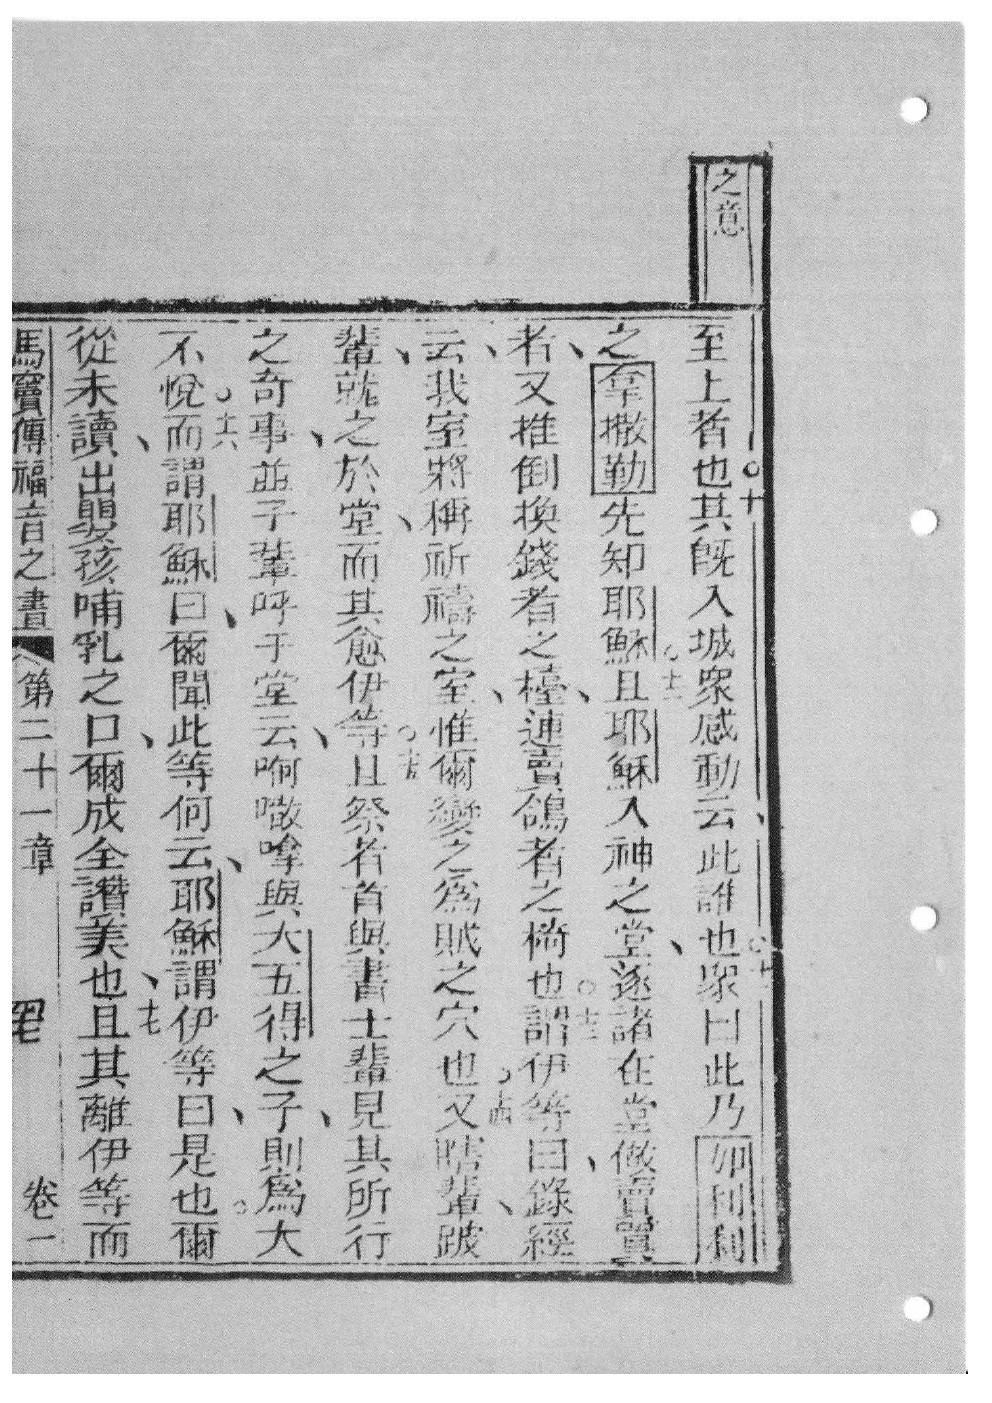 之意
至上者也其旣入城眾感動云此誰也眾曰此乃加利利
之拿撒勒先知耶穌且耶穌入神之堂逐諸在堂做賣買
者又推倒換錢者之檯連賣鴿者之椅也謂伊等曰錄經
云我室將稱祈禱之室惟爾變之為賊之穴也又瞎輩跛
輩就之於堂而其愈伊等且祭者首與書士輩見其所行
之奇事並子輩呼于堂云呵𠿒嗱與大五得之子則為大
不悅而謂耶穌曰爾聞此等何云耶穌謂伊等曰是也爾
從未讀出嬰孩哺乳之口爾成全讚美也且其離伊等而
馬竇傳福音之書 第二十一章 卷一